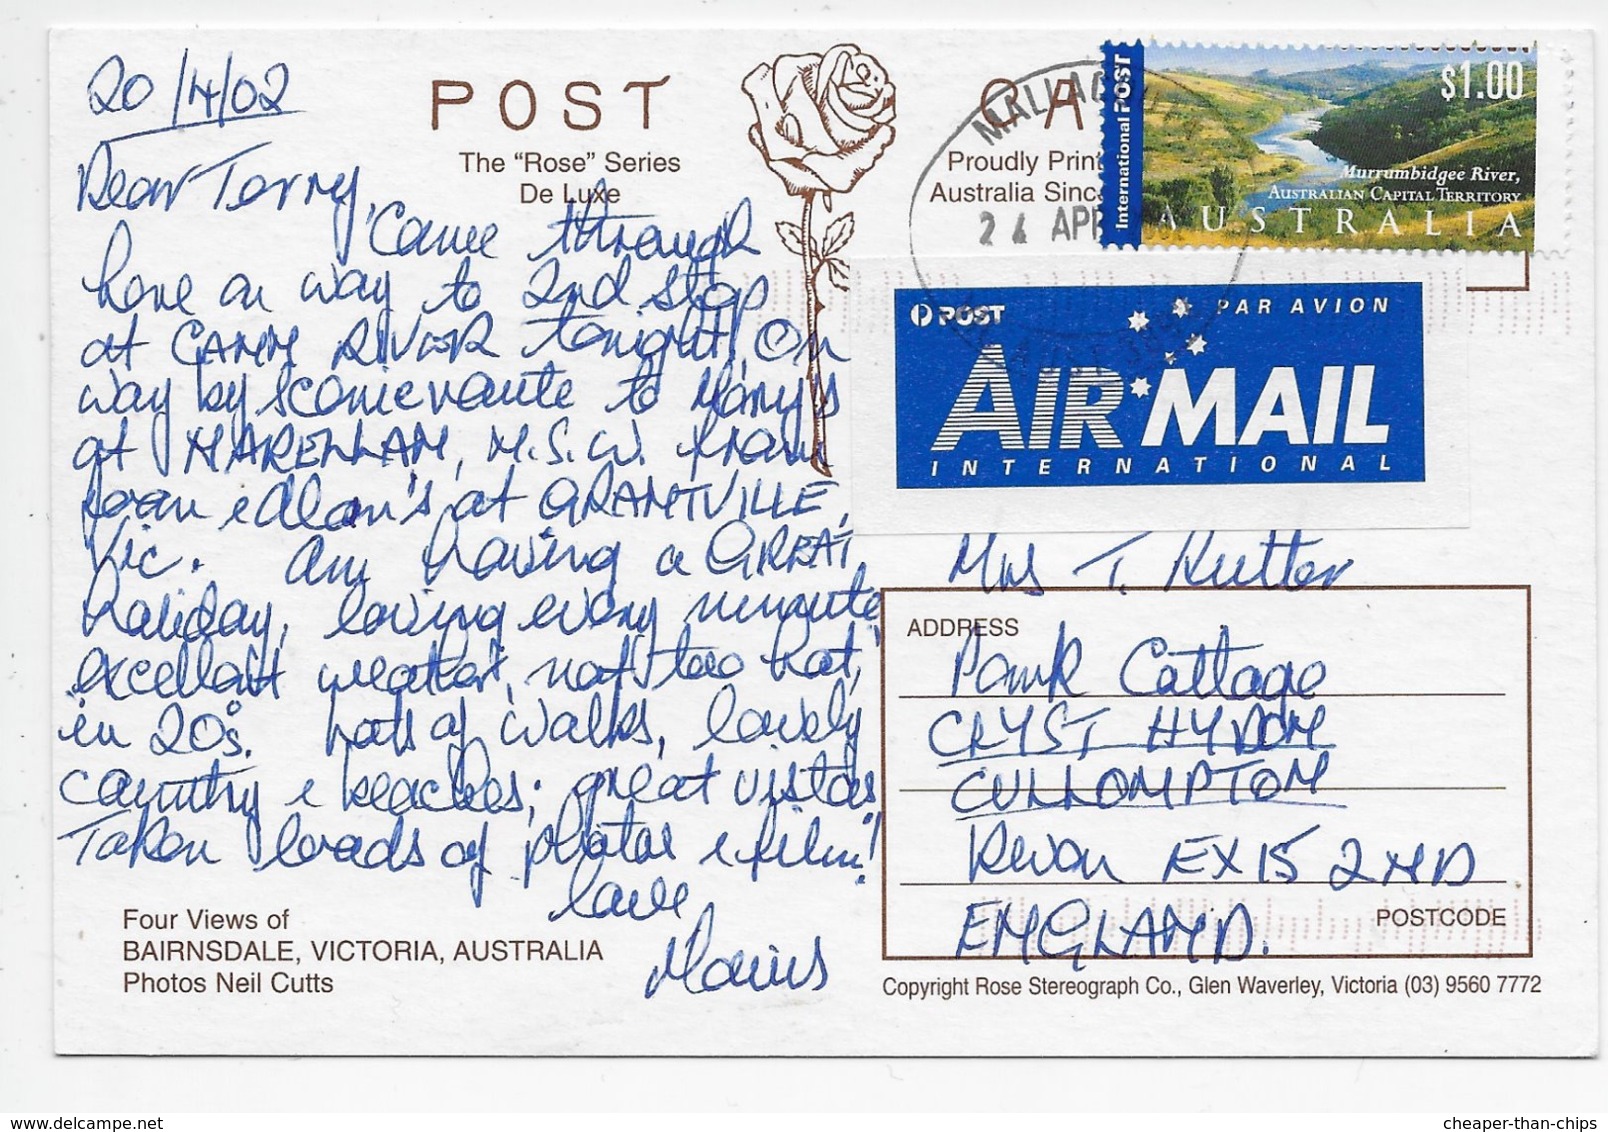 20/4/02
POST CA
The "Rose" Series
De Luxe
Proudly Print
Australia Sinc
MALLAC
24 APR
International POST
$1.00
Murrumbidgee River,
AUSTRALIAN CAPITAL TERRITORY
AUSTRALIA
POST
PAR AVION
AIR MAIL
INTERNATIONAL
Dear Terry,
Came through
here on way to 2nd stop
at CANN RIVER tonight! On
way by scenic route to Mary's
at NARELLAN, N.S.W. from
Joan & Alan's at GRANTVILLE,
Vic. Am having a GREAT
holiday, loving every minute,
excellent weather, not too hot,
in 20°s. Lots of walks, lovely
country & beaches; great vistas
Taken loads of photos & film!
Love,
Four Views of
BAIRNSDALE, VICTORIA, AUSTRALIA
Photos Neil Cutts
Mrs T. Rutter
ADDRESS
Cottage
CLYST HYDON
CULLOMPTON
Devon EX15 2ND
ENGLAND.
POSTCODE
Copyright Rose Stereograph Co., Glen Waverley, Victoria (03) 9560 7772
cheaper-than-chips